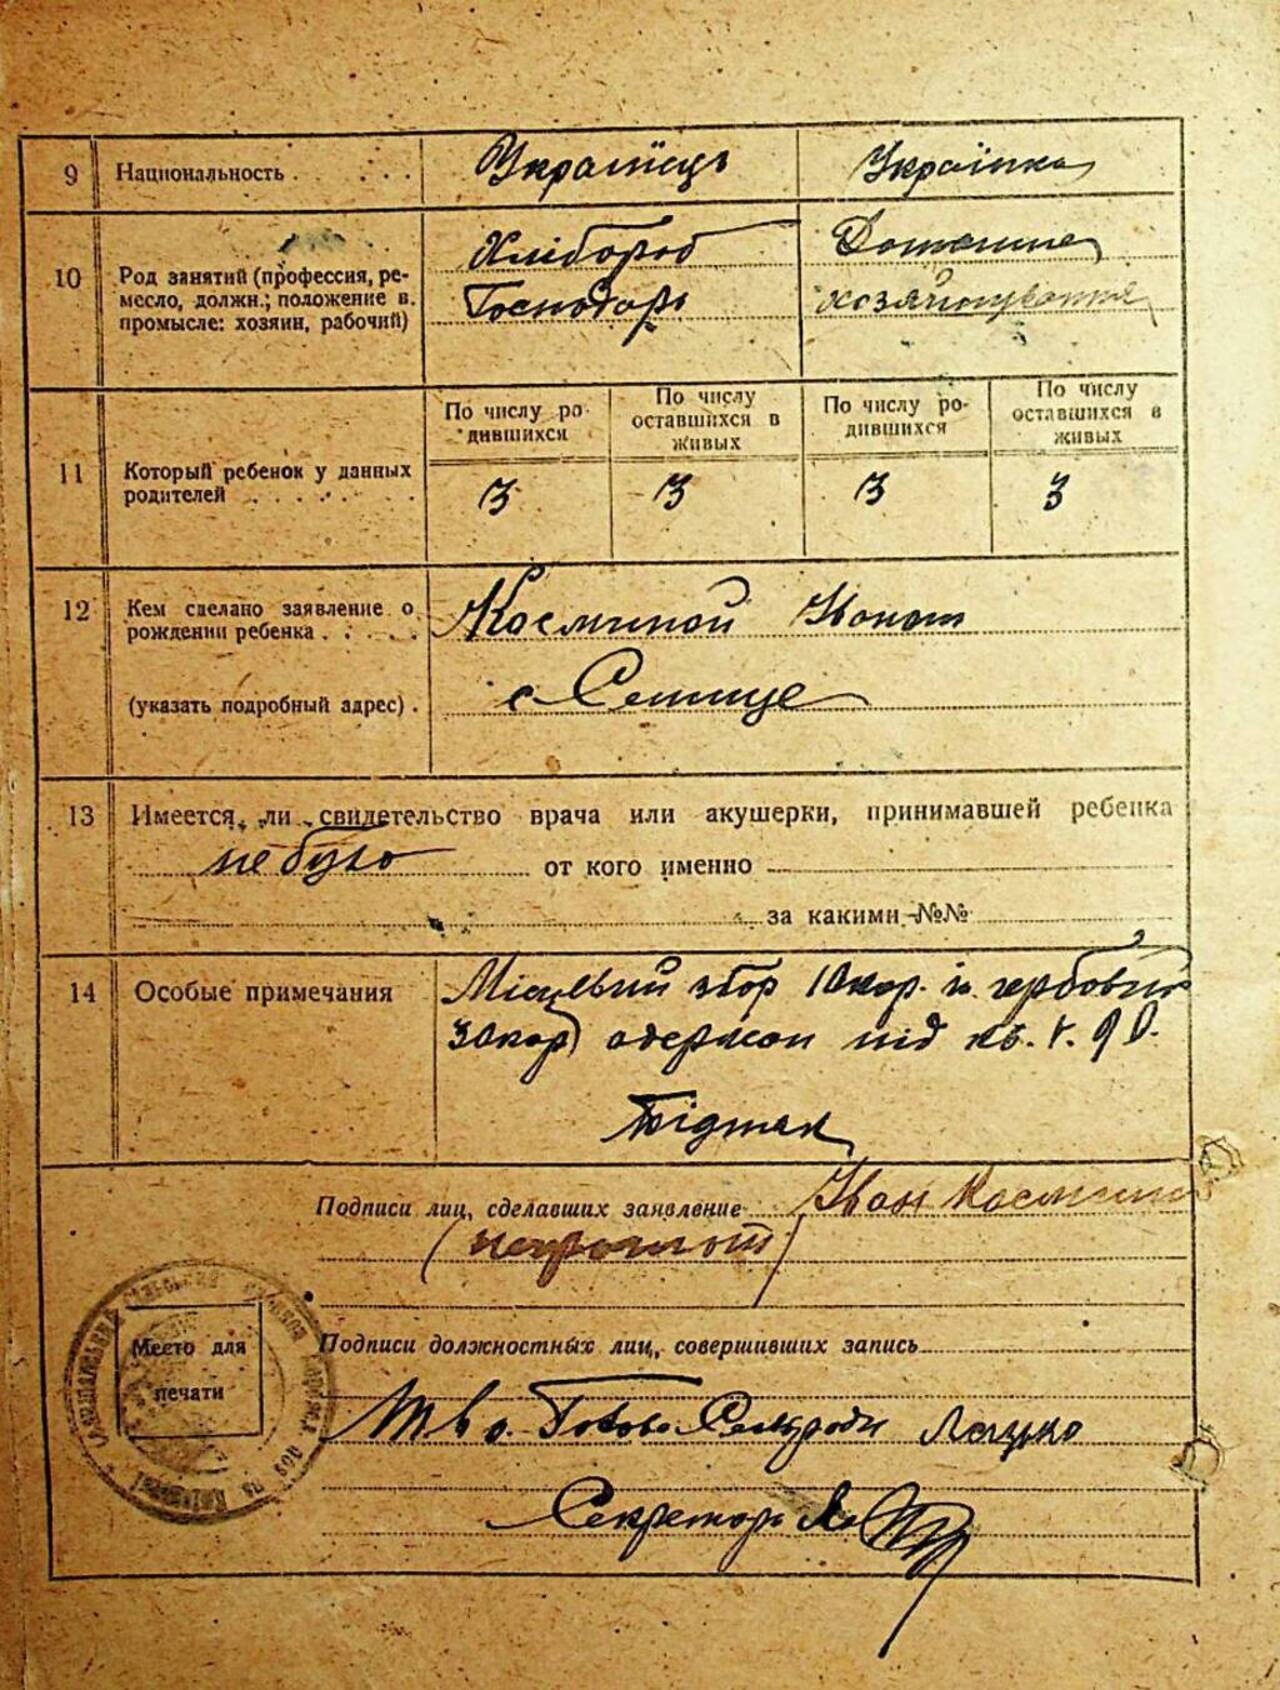 9 Национальность . . . . . . Украïнець Украінка
10 Род занятий (профессия, ре-
месло, должн.; положение в
промысле: хозяин, рабочий)
Хлібороб
Господарь
Домашне
хозяйнування
11 Который ребенок у данных
родителей
По числу ро-
дившихся
По числу
оставшихся в
живых
По числу ро-
дившихся
По числу
оставшихся в
живых
3 3 3 3
12 Кем сделано заявление о
рождении ребенка
(указать подробный адрес)
Косминой Иваном
с
13 Имеется ли свидетельство врача или акушерки, принимавшей ребенка
не було от кого именно
за какими №№
14 Особые примечания
Місцевий збор 10 кор. и гербовий
30 кор одержан під кв.
Підпис лиц
Подписи лиц, сделавших заявление Иван Космин
(неграмотн)
Место для
печати
Подписи должностных лиц, совершивших запись
Т в о. Голови Сельради
Секретарь